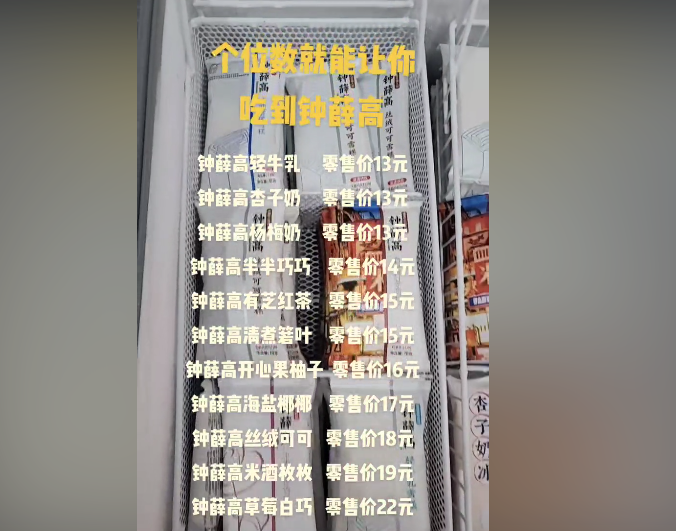 个位数就能让你
吃到钟薛高
钟薛高轻牛乳 零售价13元
钟薛高杏子奶 零售价13元
钟薛高杨梅奶 零售价13元
钟薛高半半巧巧 零售价14元
钟薛高有芝红茶 零售价15元
钟薛高清煮箬叶 零售价15元
钟薛高开心果柚子 零售价16元
钟薛高海盐椰椰 零售价17元
钟薛高丝绒可可 零售价18元
钟薛高米酒枚枚 零售价19元
钟薛高草莓白巧 零售价22元
钟薛高
杏子奶冰